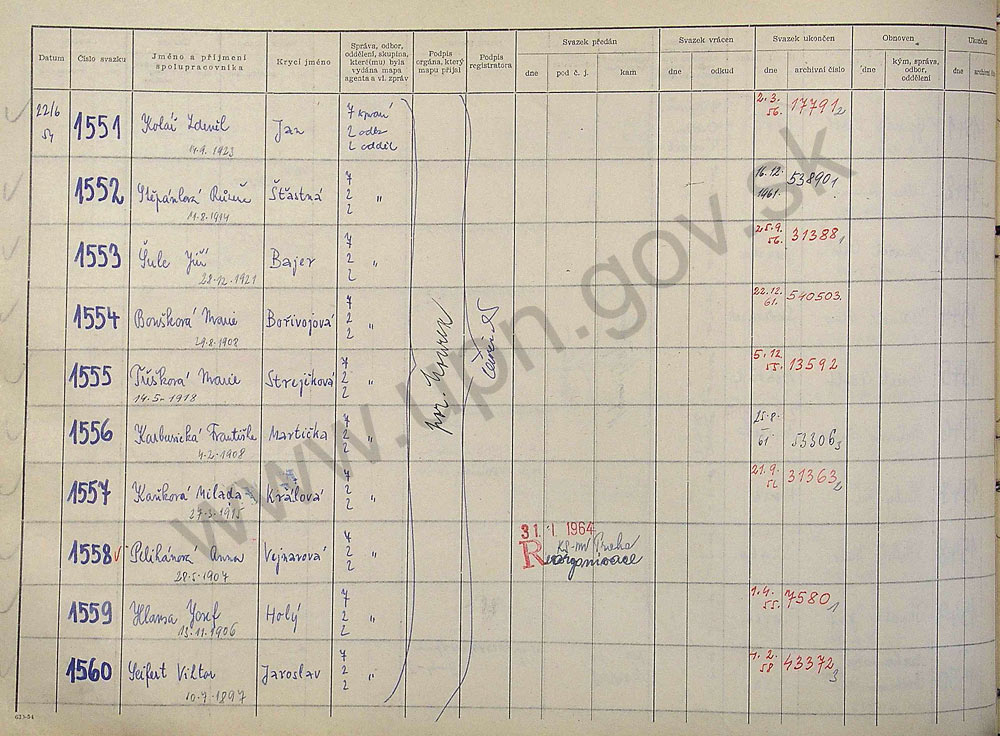 Datum
Číslo svazku
Jméno a příjmení
spolupracovníka
Krycí jméno
Správa, odbor,
oddělení, skupina,
které(mu) byla
vydána mapa
agenta a vl. zpráv
Podpis
orgána, který
mapu přijal
Podpis
registratora
Svazek předán
dne
pod č. j.
kam
Svazek vrácen
dne
odkud
Svazek ukončen
dne
archivní číslo
Obnoven
dne
kým, správa,
odbor,
oddělení
Ukončen
dne
22/6
54
1551
Kolář Zdeněk
Jan
7 správ
2 odbor
2 odděl
2.3.
56.
17791 2
14.9.1923
1552
Štěpánková Růžena
Šťastná
7
2 "
2
16.12.
1961.
538901
11.8.1914
1553
Šulc Jiří
Bajer
7
2 "
2
25.9.
56.
31388 1
22.12.1921
1554
Boušková Marie
Bořivojová
7
2 "
2
22.12.
61.
540503.
29.8.1908
1555
Marie
Strejčková
7
2 "
2
5.12.
55.
13592
14.5.1918
1556
Martička
7
2 "
2
25.8.
61
53306 3
4.2.1908
1557
Kaňková Milada
Králová
7
2 "
2
21.9.
31363 2
27.3.1915
1558 V
Pelihánová Anna
Vejnarová
7
2 "
2
31. I. 1964
KS-MV Praha
Reorganisace
28.5.1904
1559
Josef
Holý
7
2 "
2
1.4.
55.
7580 1
13.11.1906
1560
Seifert Viktor
Jaroslav
7
2 "
2
1.2.
58
43372 3
10.7.1897
www.upn.gov.sk